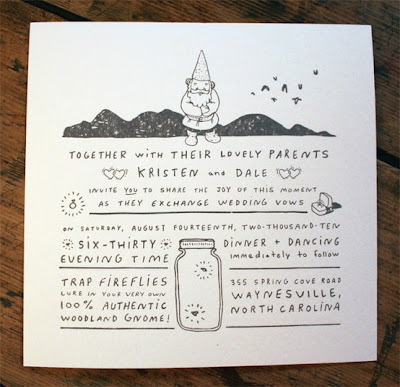 TOGETHER WITH THEIR LOVELY PARENTS
KRISTEN and DALE
INVITE YOU TO SHARE THE JOY OF THIS MOMENT
AS THEY EXCHANGE WEDDING VOWS
ON SATURDAY, AUGUST FOURTEENTH, TWO-THOUSAND-TEN
SIX-THIRTY
EVENING TIME
DINNER + DANCING
immediately to follow
TRAP FIREFLIES
LURE IN YOUR VERY OWN
100% AUTHENTIC
WOODLAND GNOME!
355 SPRING COVE ROAD
WAYNESVILLE,
NORTH CAROLINA